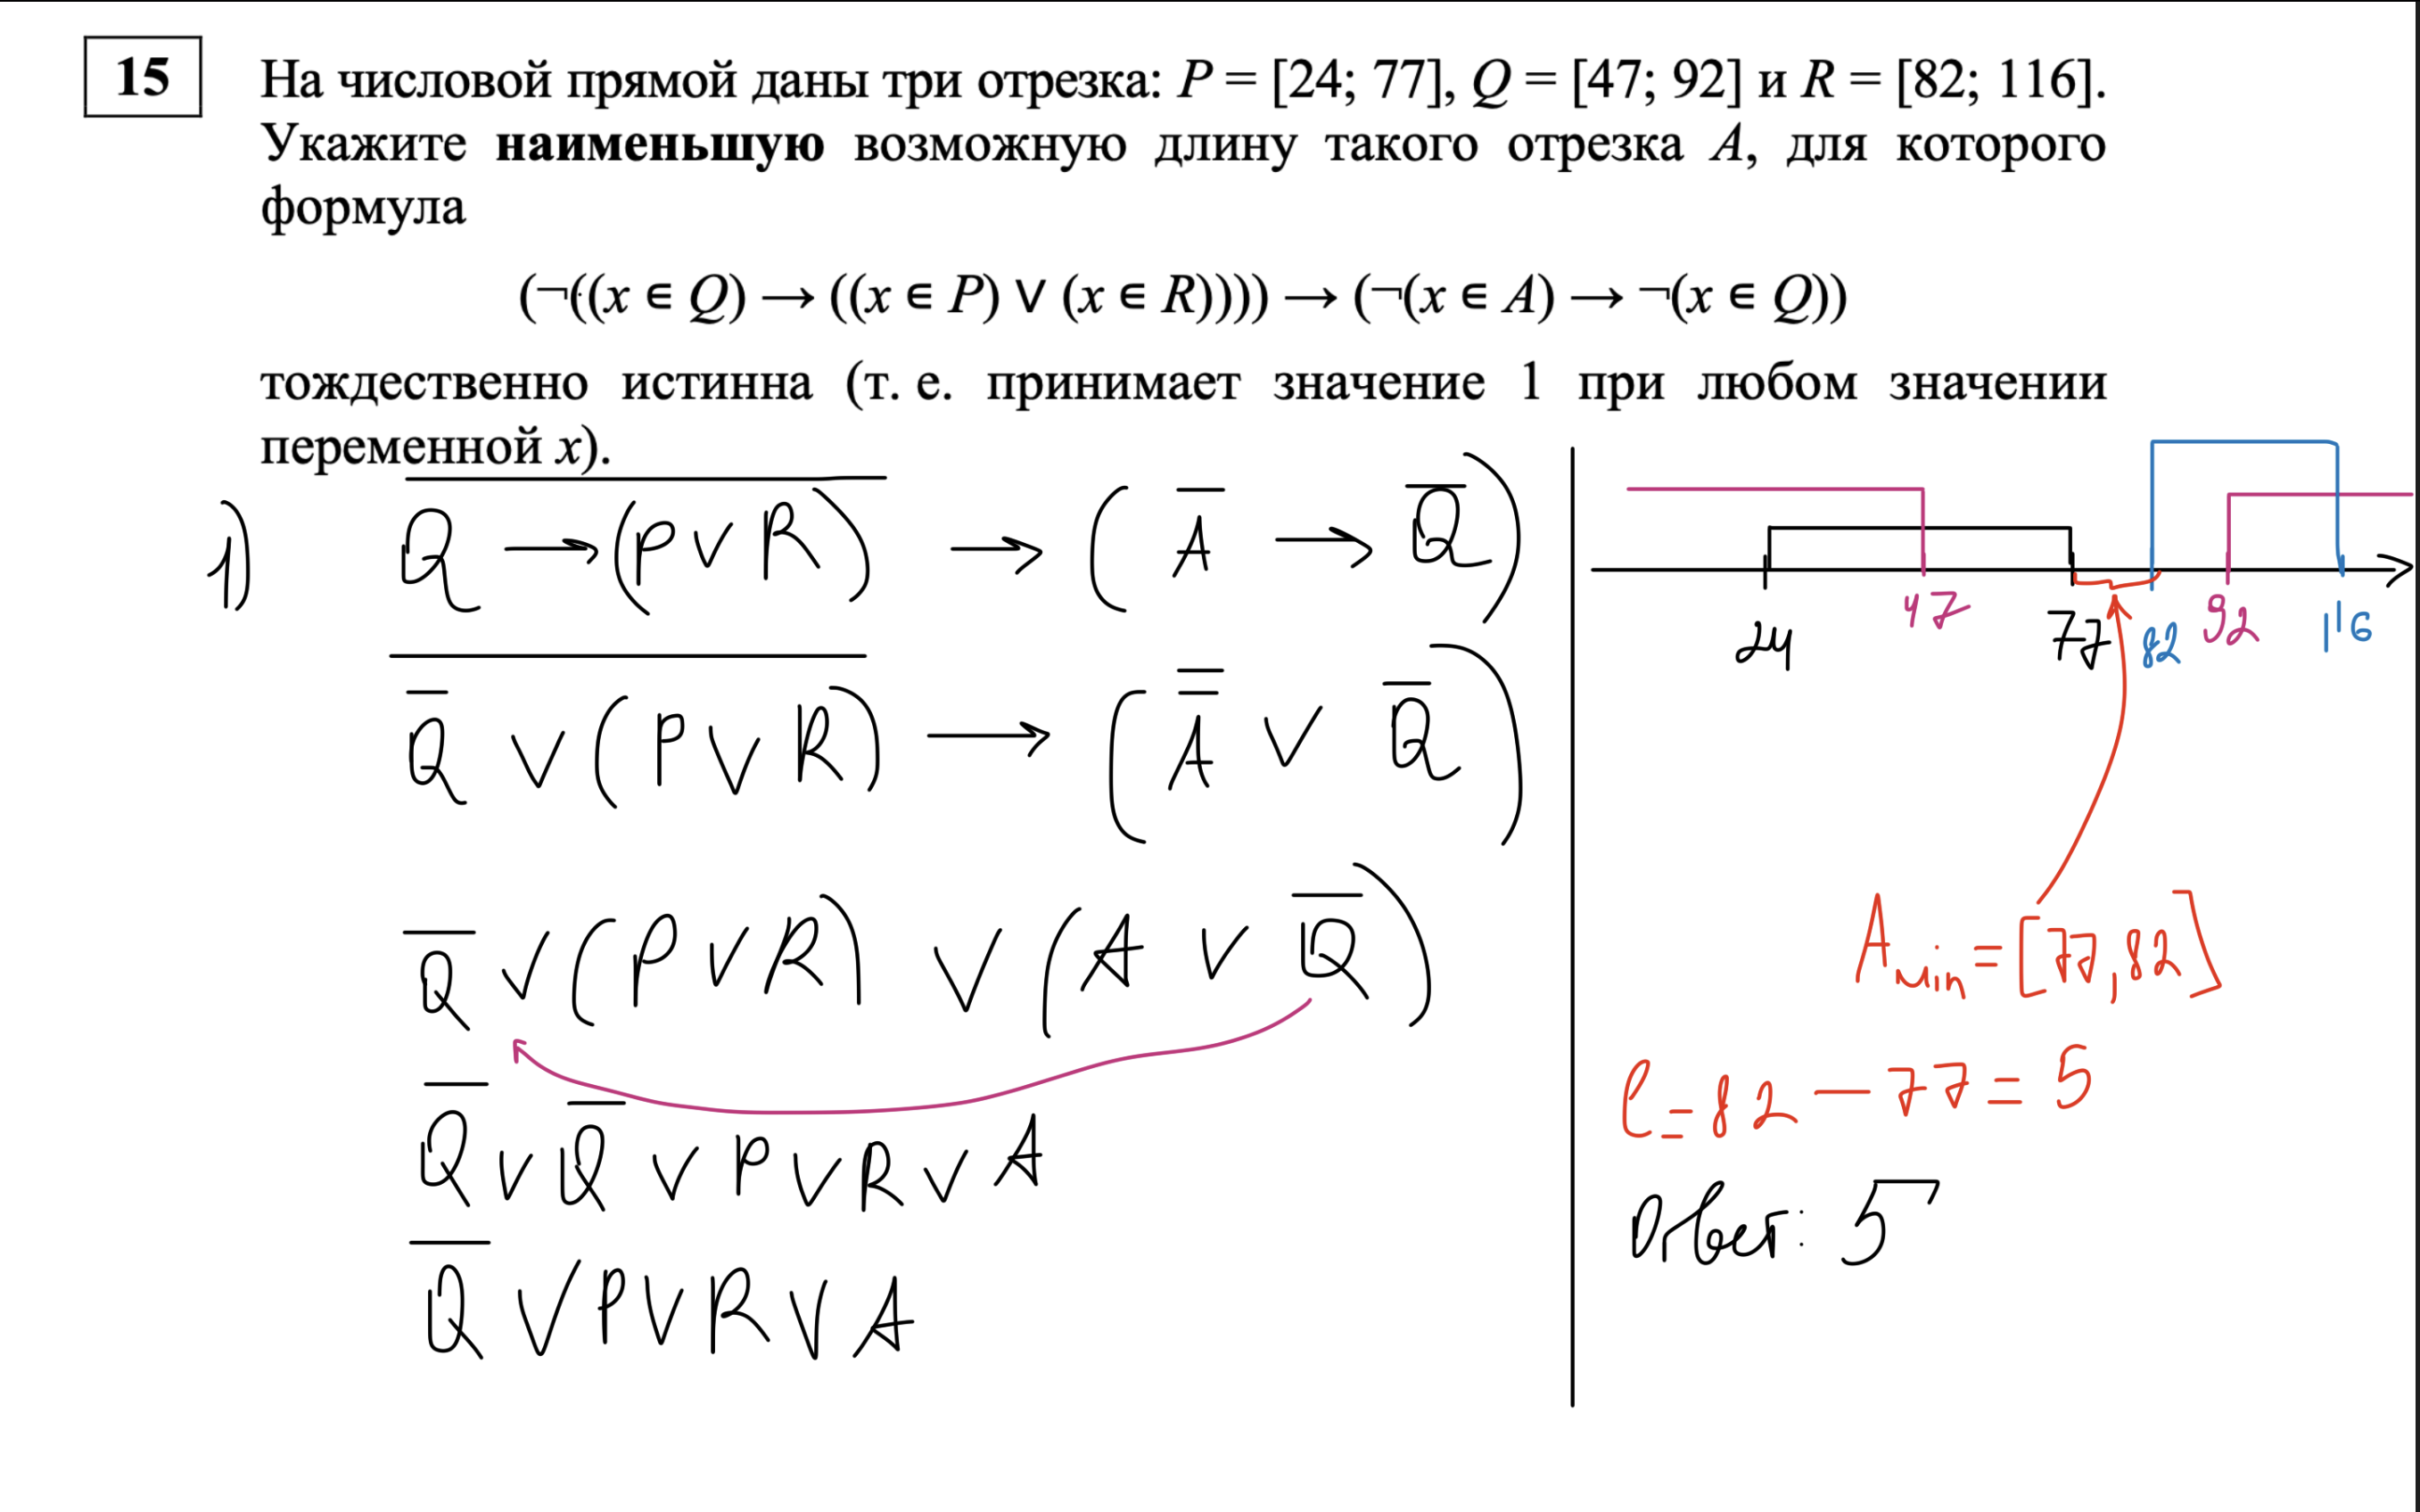 15
На числовой прямой даны три отрезка: P = [24; 77], Q = [47; 92] и R = [82; 116].
Укажите наименьшую возможную длину такого отрезка A, для которого
формула
(¬((x ∈ Q) → ((x ∈ P) ∨ (x ∈ R)))) → (¬(x ∈ A) → ¬(x ∈ Q))
тождественно истинна (т. е. принимает значение 1 при любом значении
переменной x).
1) \overline{Q → (P ∨ R)} → (\overline{A} → \overline{Q})
\overline{\overline{Q} ∨ (P ∨ R)} → (\overline{\overline{A}} ∨ \overline{Q})
\overline{Q} ∨ (P ∨ R) ∨ (A ∨ \overline{Q})
\overline{Q} ∨ \overline{Q} ∨ P ∨ R ∨ A
\overline{Q} ∨ P ∨ R ∨ A
24 47 77 82 92 116
A min = [77, 82]
l = 82 − 77 = 5
Ответ: 5